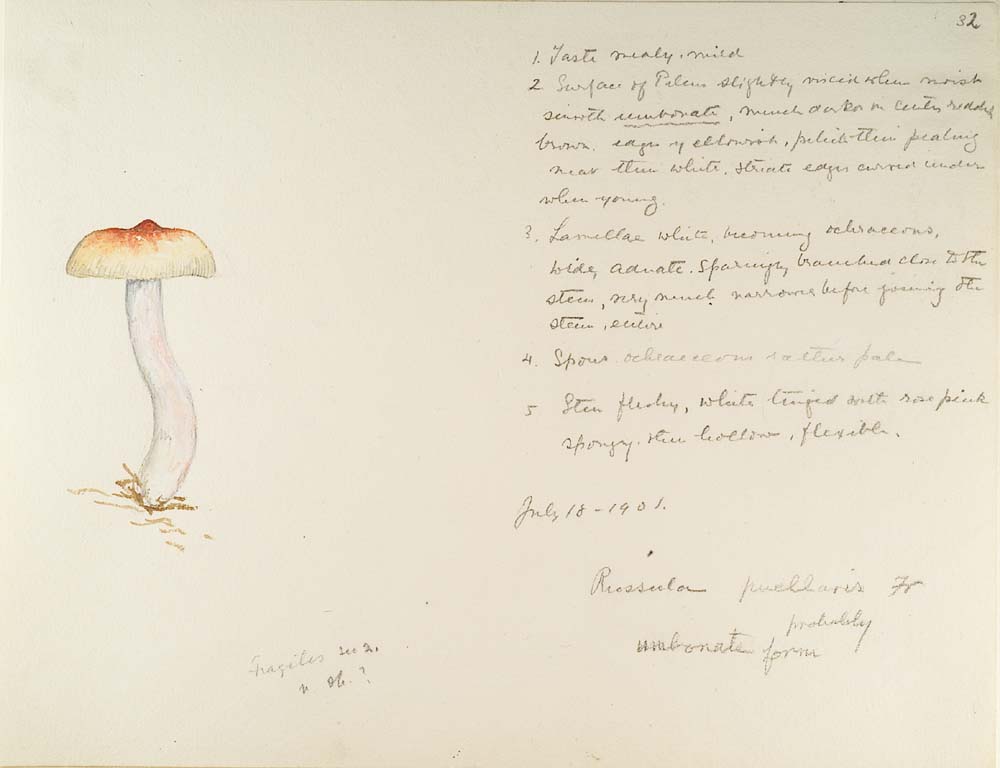 32
1. Taste mealy. mild
2 Surface of Pileus slightly viscid when moist
smooth umbonate, much darker in center reddish
brown. edges yellowish, pellicle thin pealing
near thin white. striate edges curved under
when young.
3. Lamellae white, becoming ochraceous,
wide, adnate. Sparingly branched close to the
stem, very much narrower before joining the
stem, entire
4. Spores ochraceous rather pale
5 Stem fleshy, white tinged with rose pink
spongy. then hollow, flexible.
July 18 - 1901.
Russula puellaris Fr
probably
umbonate form
Fragiles
?